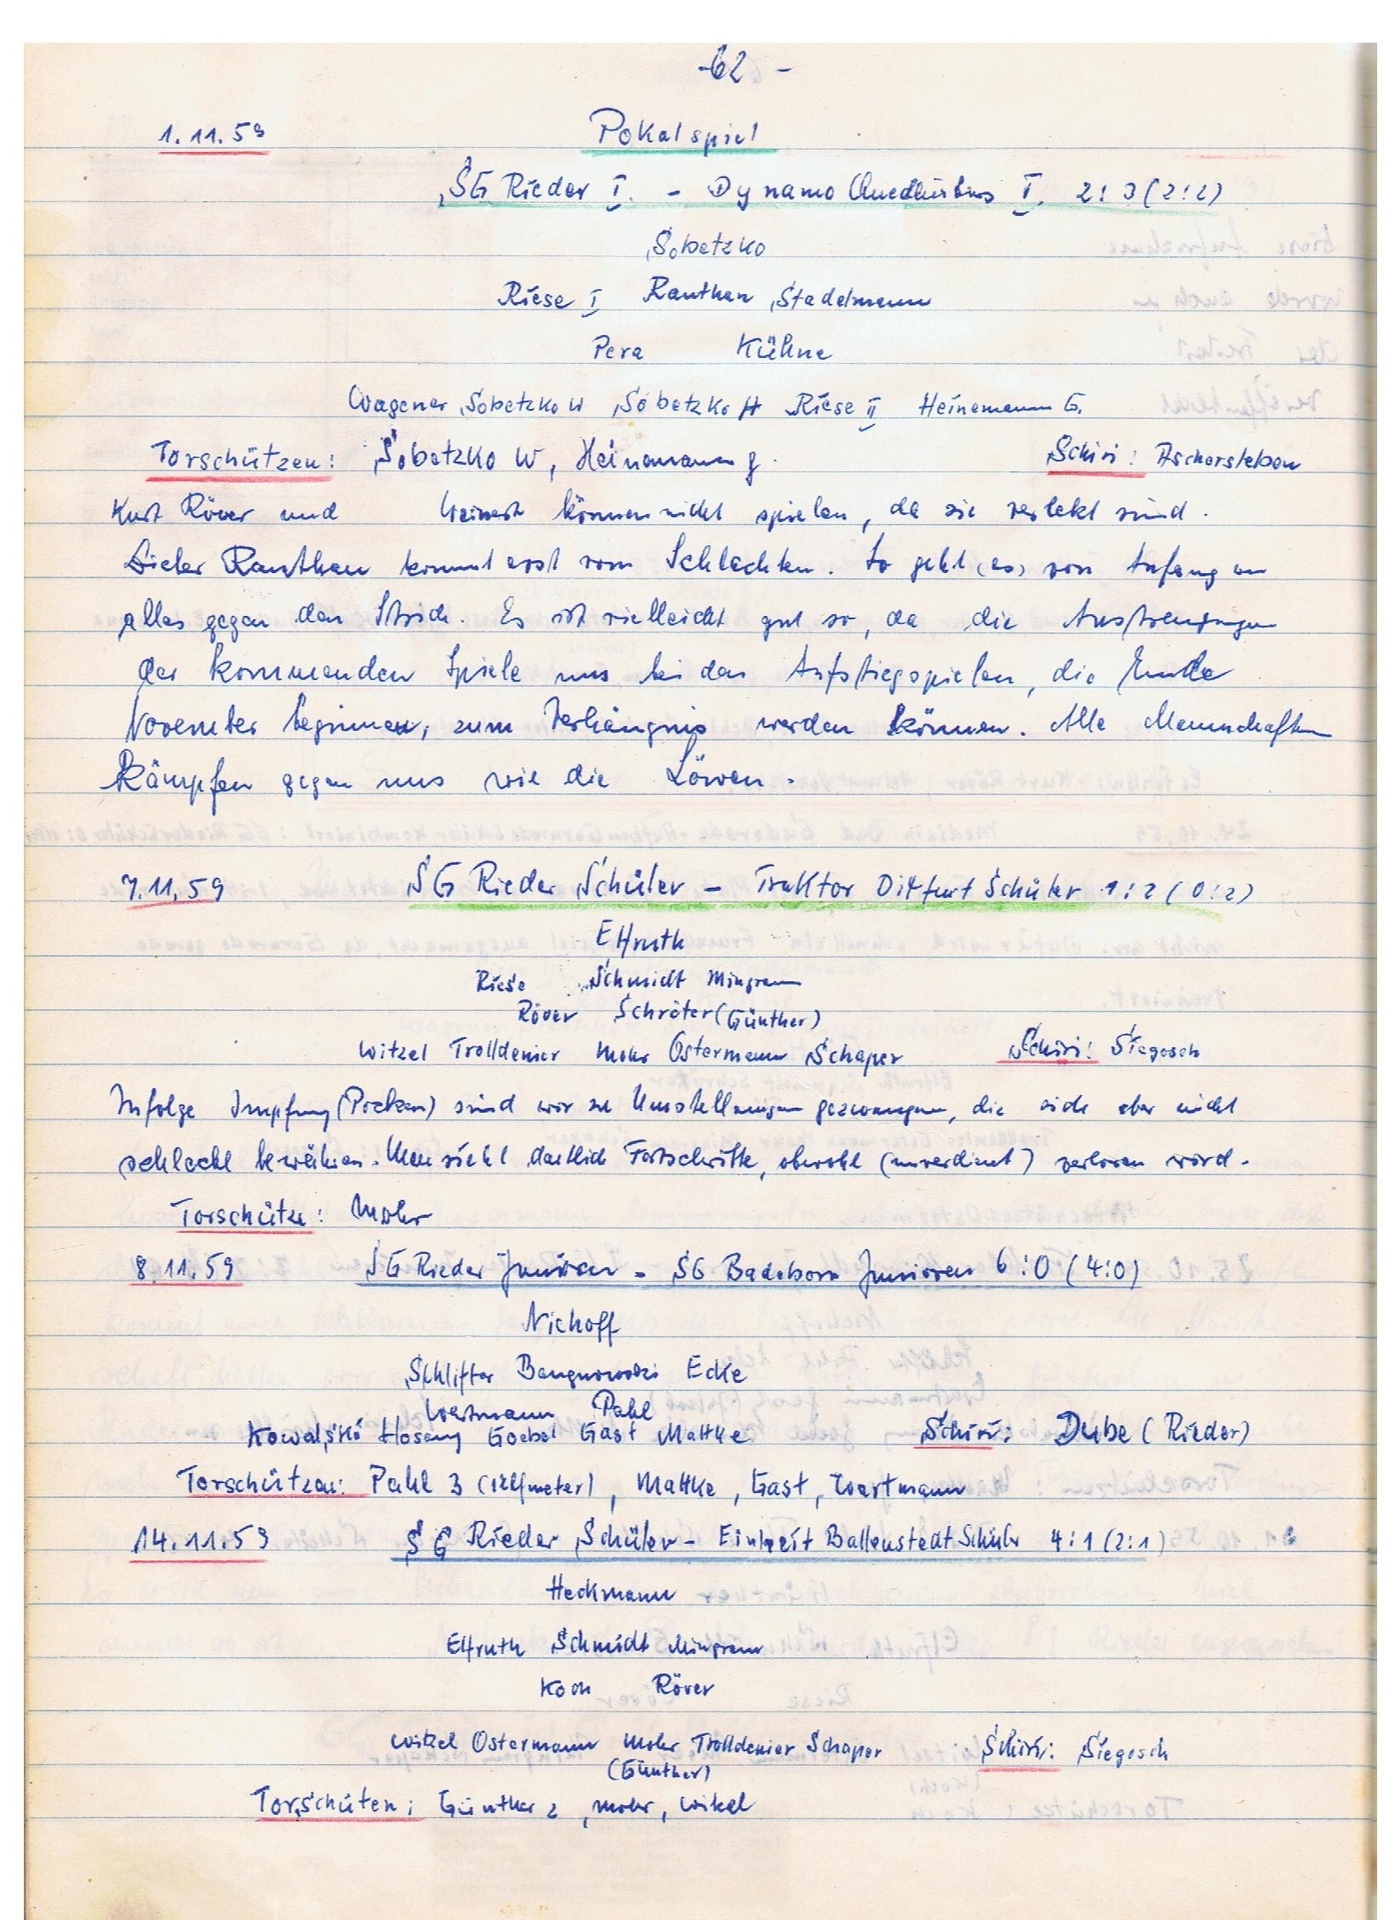 -62-
1.11.59 Pokalspiel
SG Rieder I. - Dynamo Quedlinburg I. 2:3 (2:2)
Sobetzko
Riese I Ranthen Stadelmann
Pera Kühne
Wagener Sobetzko W Sobetzko H Riese II Heinemann G.
Torschützen: Sobetzko W, Heinemann G. Schiri: Aschersleben
Kurt Röver und Weinert können nicht spielen, da sie verletzt sind.
Dieter Ranthen kommt erst vom Schlachten. So geht (es) von Anfang an
alles gegen den Strich. Es ist vielleicht gut so, da die Anstrengungen
der kommenden Spiele uns bei den Aufstiegspielen, die Ende
November beginnen, zum Verhängnis werden können. Alle Mannschaften
kämpfen gegen uns wie die Löwen.
7.11.59 SG Rieder Schüler - Traktor Ditfurt Schüler 1:2 (0:2)
Elfruth
Riese Schmidt Mingram
Röver Schröter (Günther)
Witzel Trolldenier Mohr Ostermann Schaper Schiri: Siegosch
Infolge Impfung (Pocken) sind wir zu Umstellungen gezwungen, die sich aber nicht
schlecht bewähren. Man sieht deutlich Fortschritte, obwohl (unverdient) verloren wird.
Torschütze: Mohr
8.11.59 SG Rieder Junioren - SG Badeborn Junioren 6:0 (4:0)
Niehoff
Schlifter Ecke
Wertmann Pahl
Kowalski Hosang Goebel Gast Mattke Schiri: Dube (Rieder)
Torschützen: Pahl 3 (1 Elfmeter), Mattke, Gast, Wertmann
14.11.59 SG Rieder Schüler - Einheit Ballenstedt Schüler 4:1 (2:1)
Heckmann
Elfruth Schmidt Mingram
Koch Röver
Witzel Ostermann Mohr Trolldenier Schaper Schiri: Siegosch
(Günther)
Torschüten: Günther 2, Mohr, Witzel